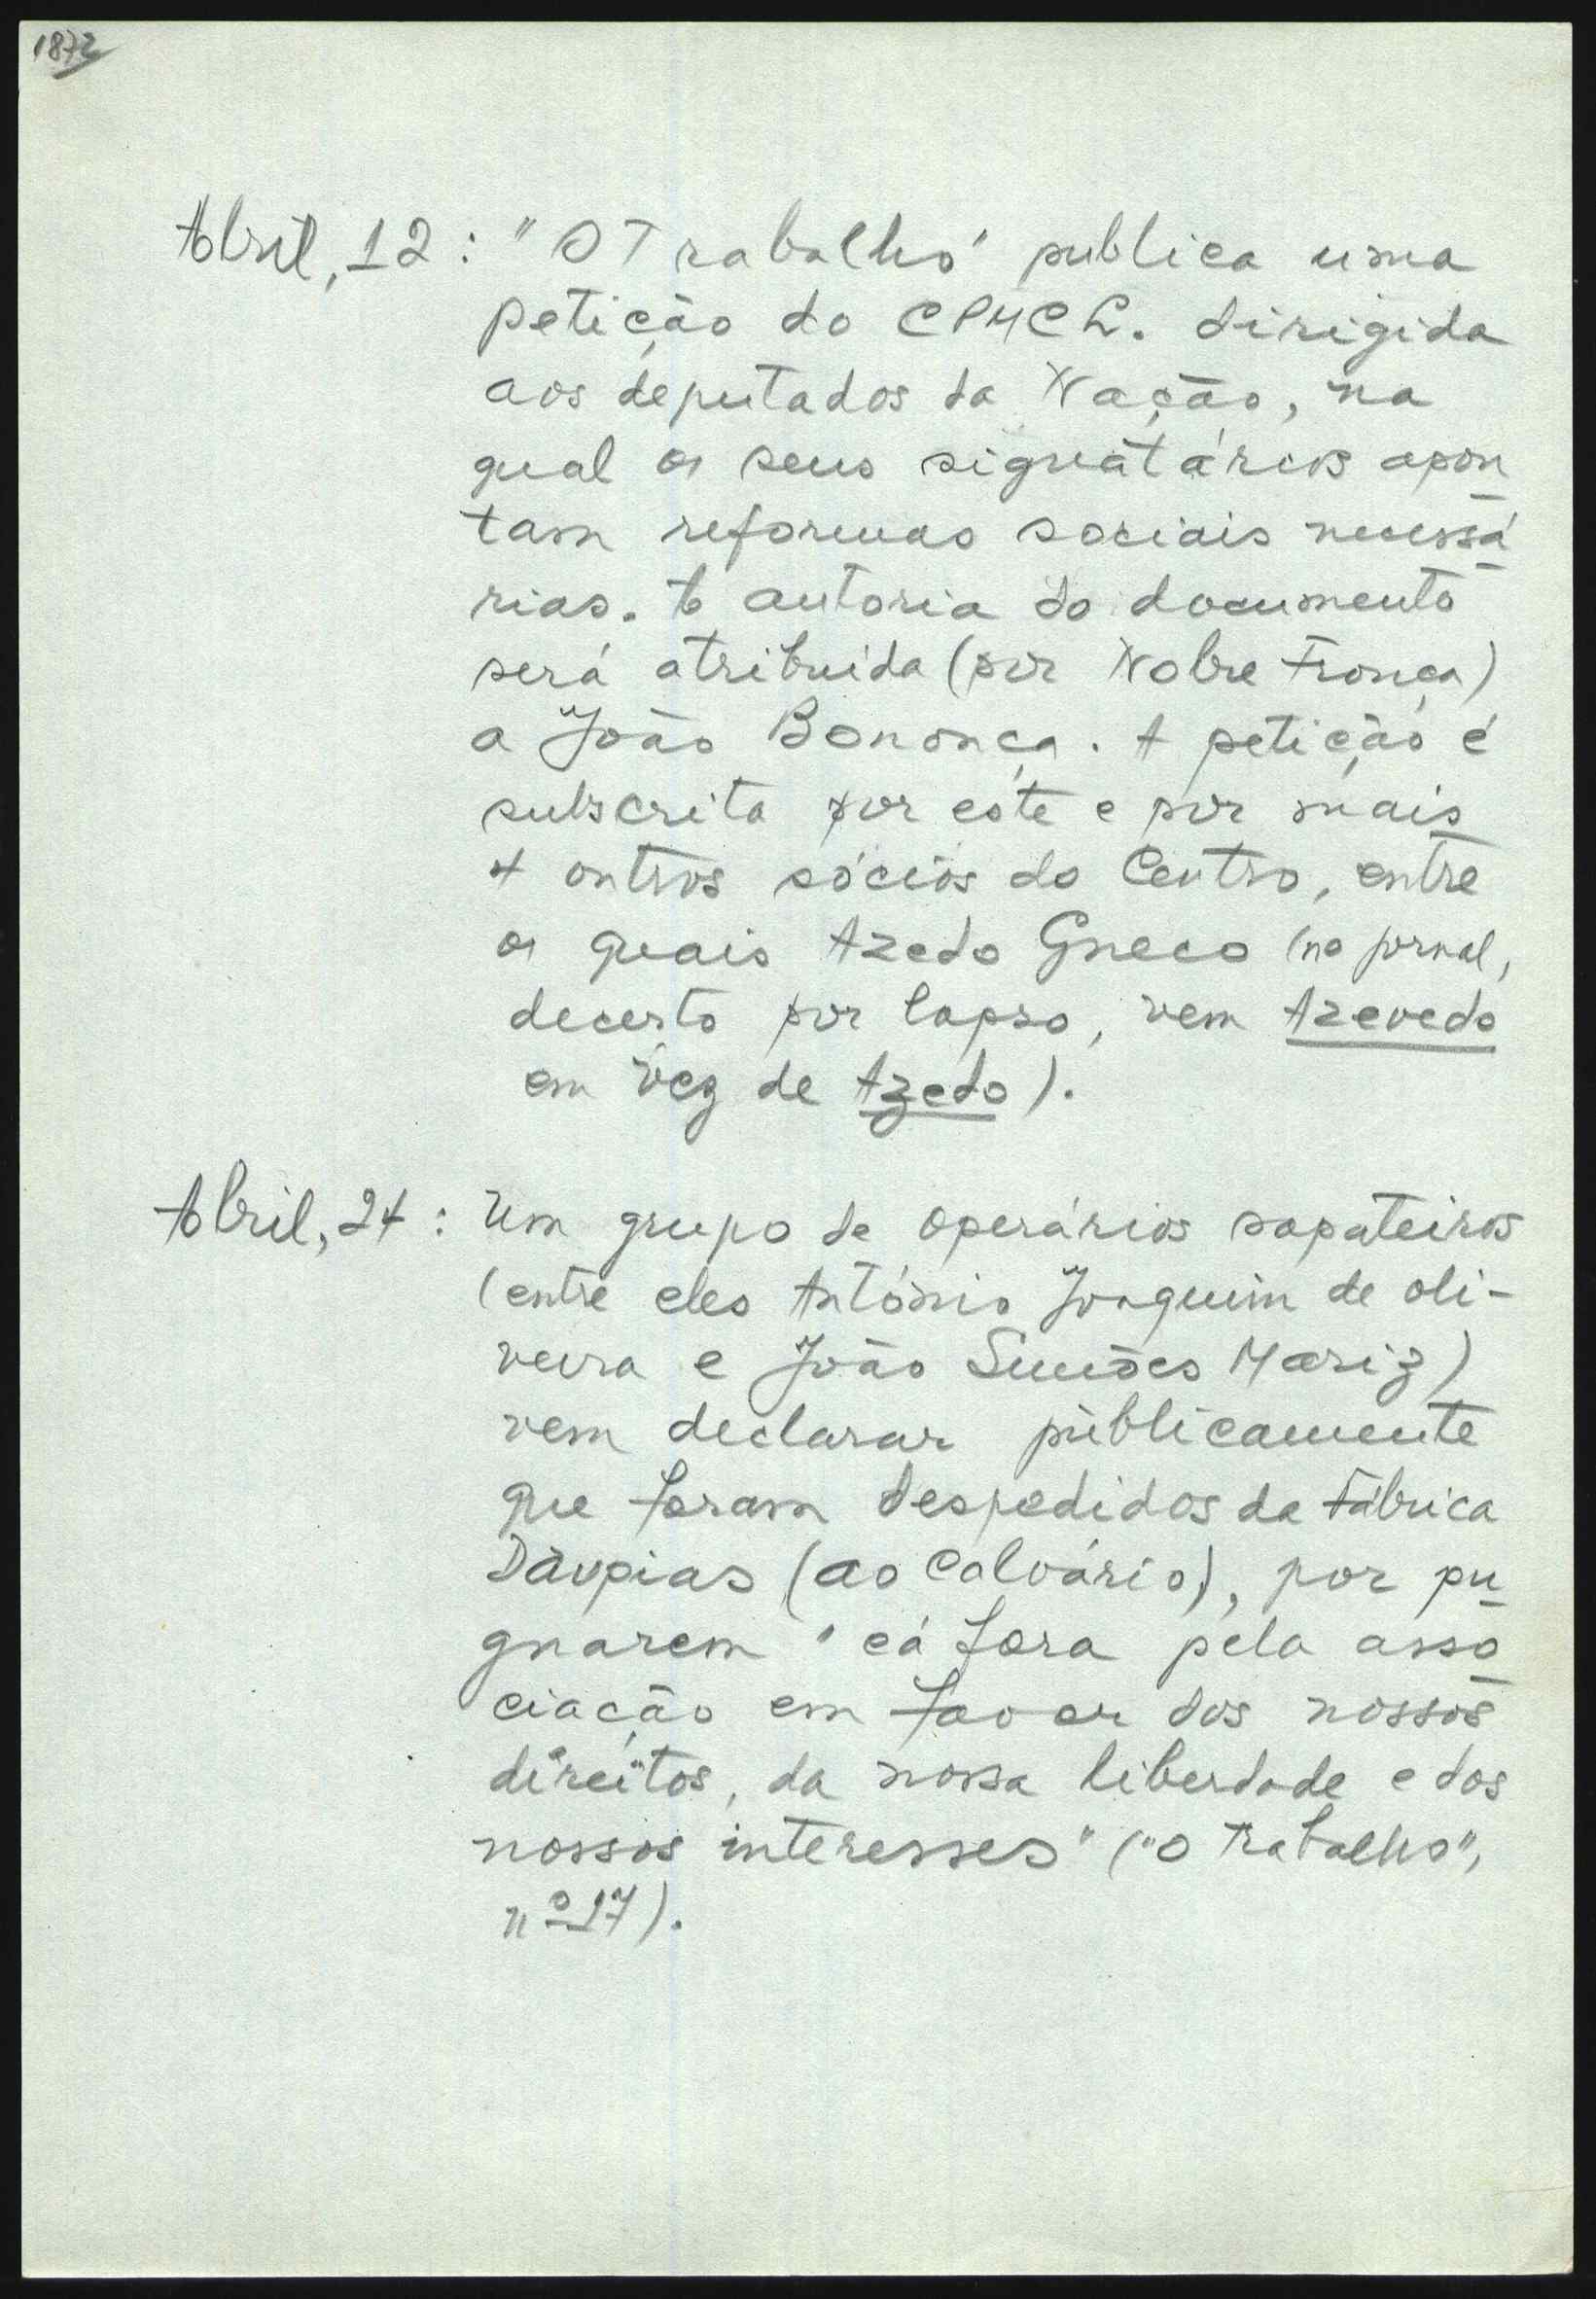 1872
Abril, 12: "O Trabalho" publica uma
petição do CPMCL. dirigida
aos deputados da Nação, na
qual os seus signatários apon
tam reformas sociais necessá
rias. A autoria do documento
será atribuida (por Nobre França)
a João Bonança. A petição é
subscrita por este e por mais
4 outros sócios do Centro, entre
os quais Azedo Gneco (no jornal,
decerto por lapso, vem Azevedo
em vez de Azedo).
Abril, 24: Um grupo de operários sapateiros
(entre eles António Joaquim de Oli-
veira e João Simões Mariz)
vem declarar pùblicamente
que foram despedidos da Fábrica
Dàupias (ao Calvário), por pu
gnarem "cá fora pela asso
ciação em favor dos nossos
direitos, da nossa liberdade e dos
nossos interesses" ("O Trabalho",
nº 17).